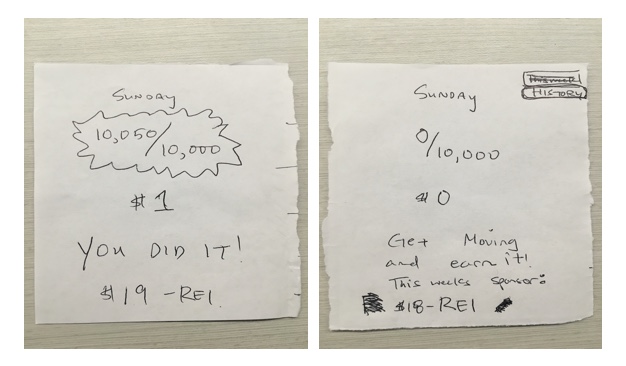 SUNDAY
10,050/10,000
$1
YOU DID IT!
$19 -REI.
HISTORY
SUNDAY
0/10,000
$0
Get Moving
and earn it!
This weeks sponsor:
$18-REI